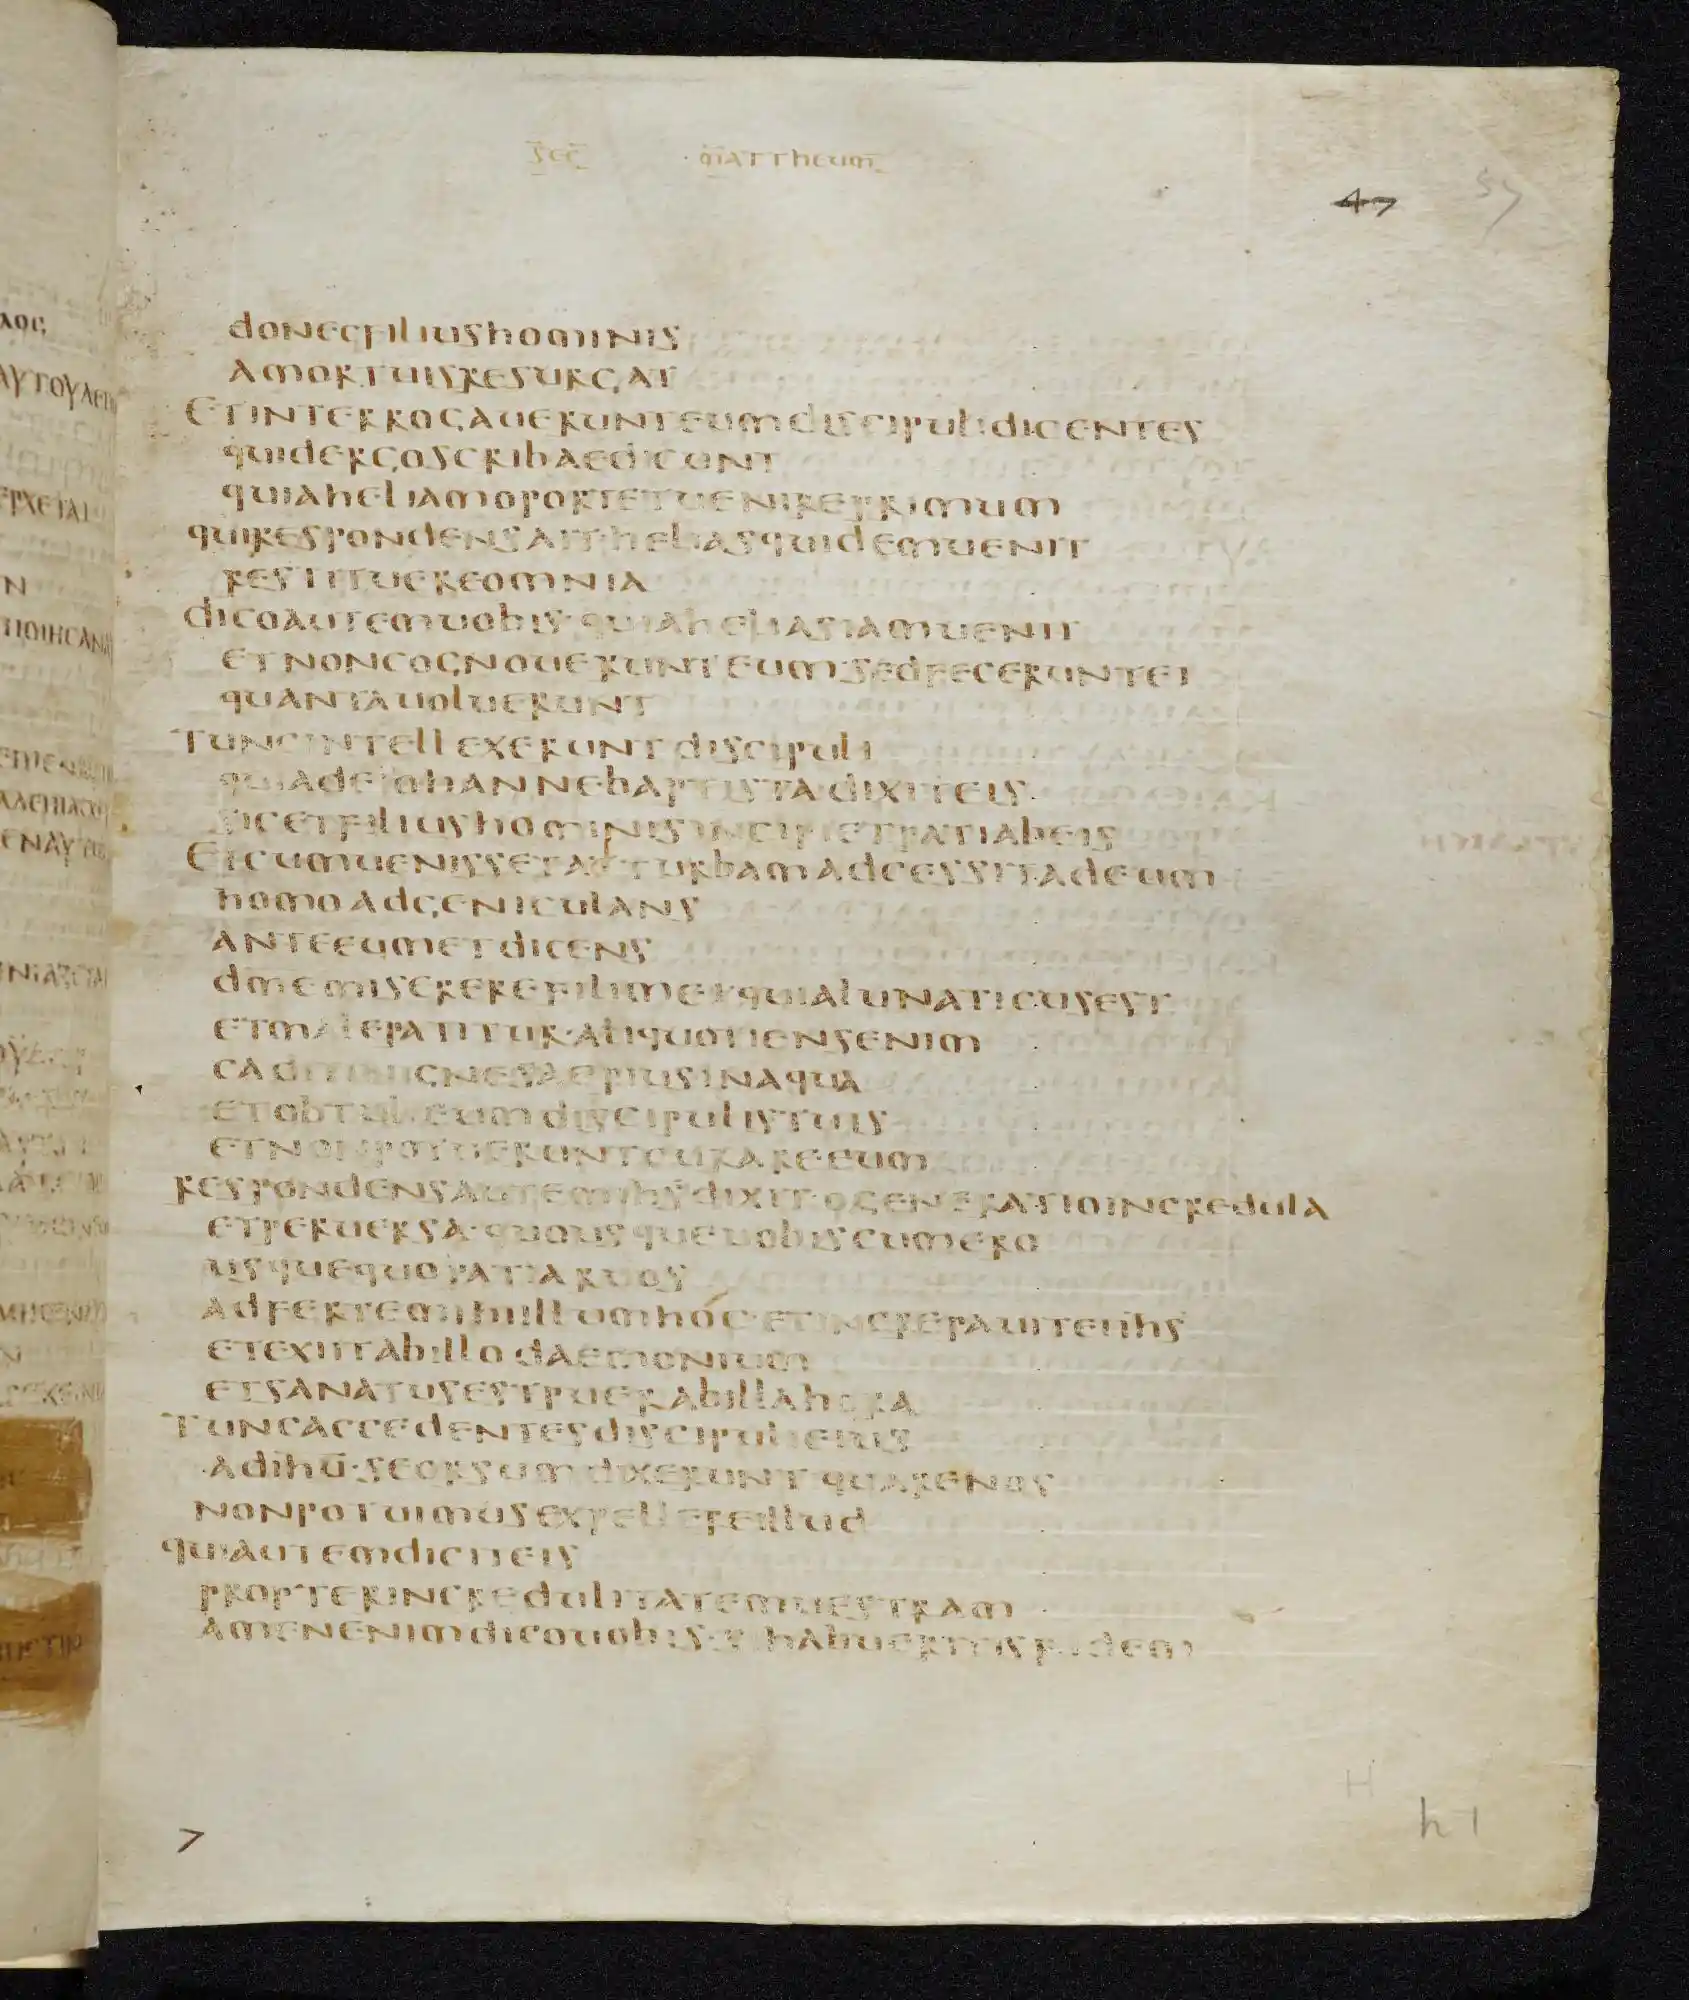 sec̅ mattheum
47 57
donecfiliushominis
amortuisresurgat
Etinterrogaueruntеumdiscipulidicentes
quidergoscribaedicunt
quiaheliamoportetuenireprimum
quirespondensaitheliasquidemuenit
restituereomnia
dicoautemuobis·quiaheliasiamuenit
etnoncognoueruntеum·sedfeceruntei
quantauoluerunt
Tuncintellexeruntdiscipuli
quiadeiohannebaptista·dixiteis·
sicetfiliushominisincipietpatiabeis
Etcumuenissetatturbamadcessitadeum
homoadgeniculans
anteeumetdicens
dn̅emiserere·filimei·quialunaticusest
etmalepatitur·aliquotiensenim
caditinignesaepiusinaqua
etobtulieumdiscipulistuis
etnonpotueruntcurareeum
respondensautemih̅s̅dixit·ogeneratioincredula
etperuersa·quousqueuobiscumero
usquequopatiaruos
adfertemihillumhóc·etincrepauiteiih̅s̅
etexiitabillodaemonium
etsanatusestpuerabillahora
Tuncaccedentesdiscipulieius
adih̅u̅·seorsumdixerunt·quarenos
nonpotuimusexpellereillud
quiautemdiciteis
propterincredulitatemuestram
amenenimdicouobis·sihabueritisfidem
H
h 1
7